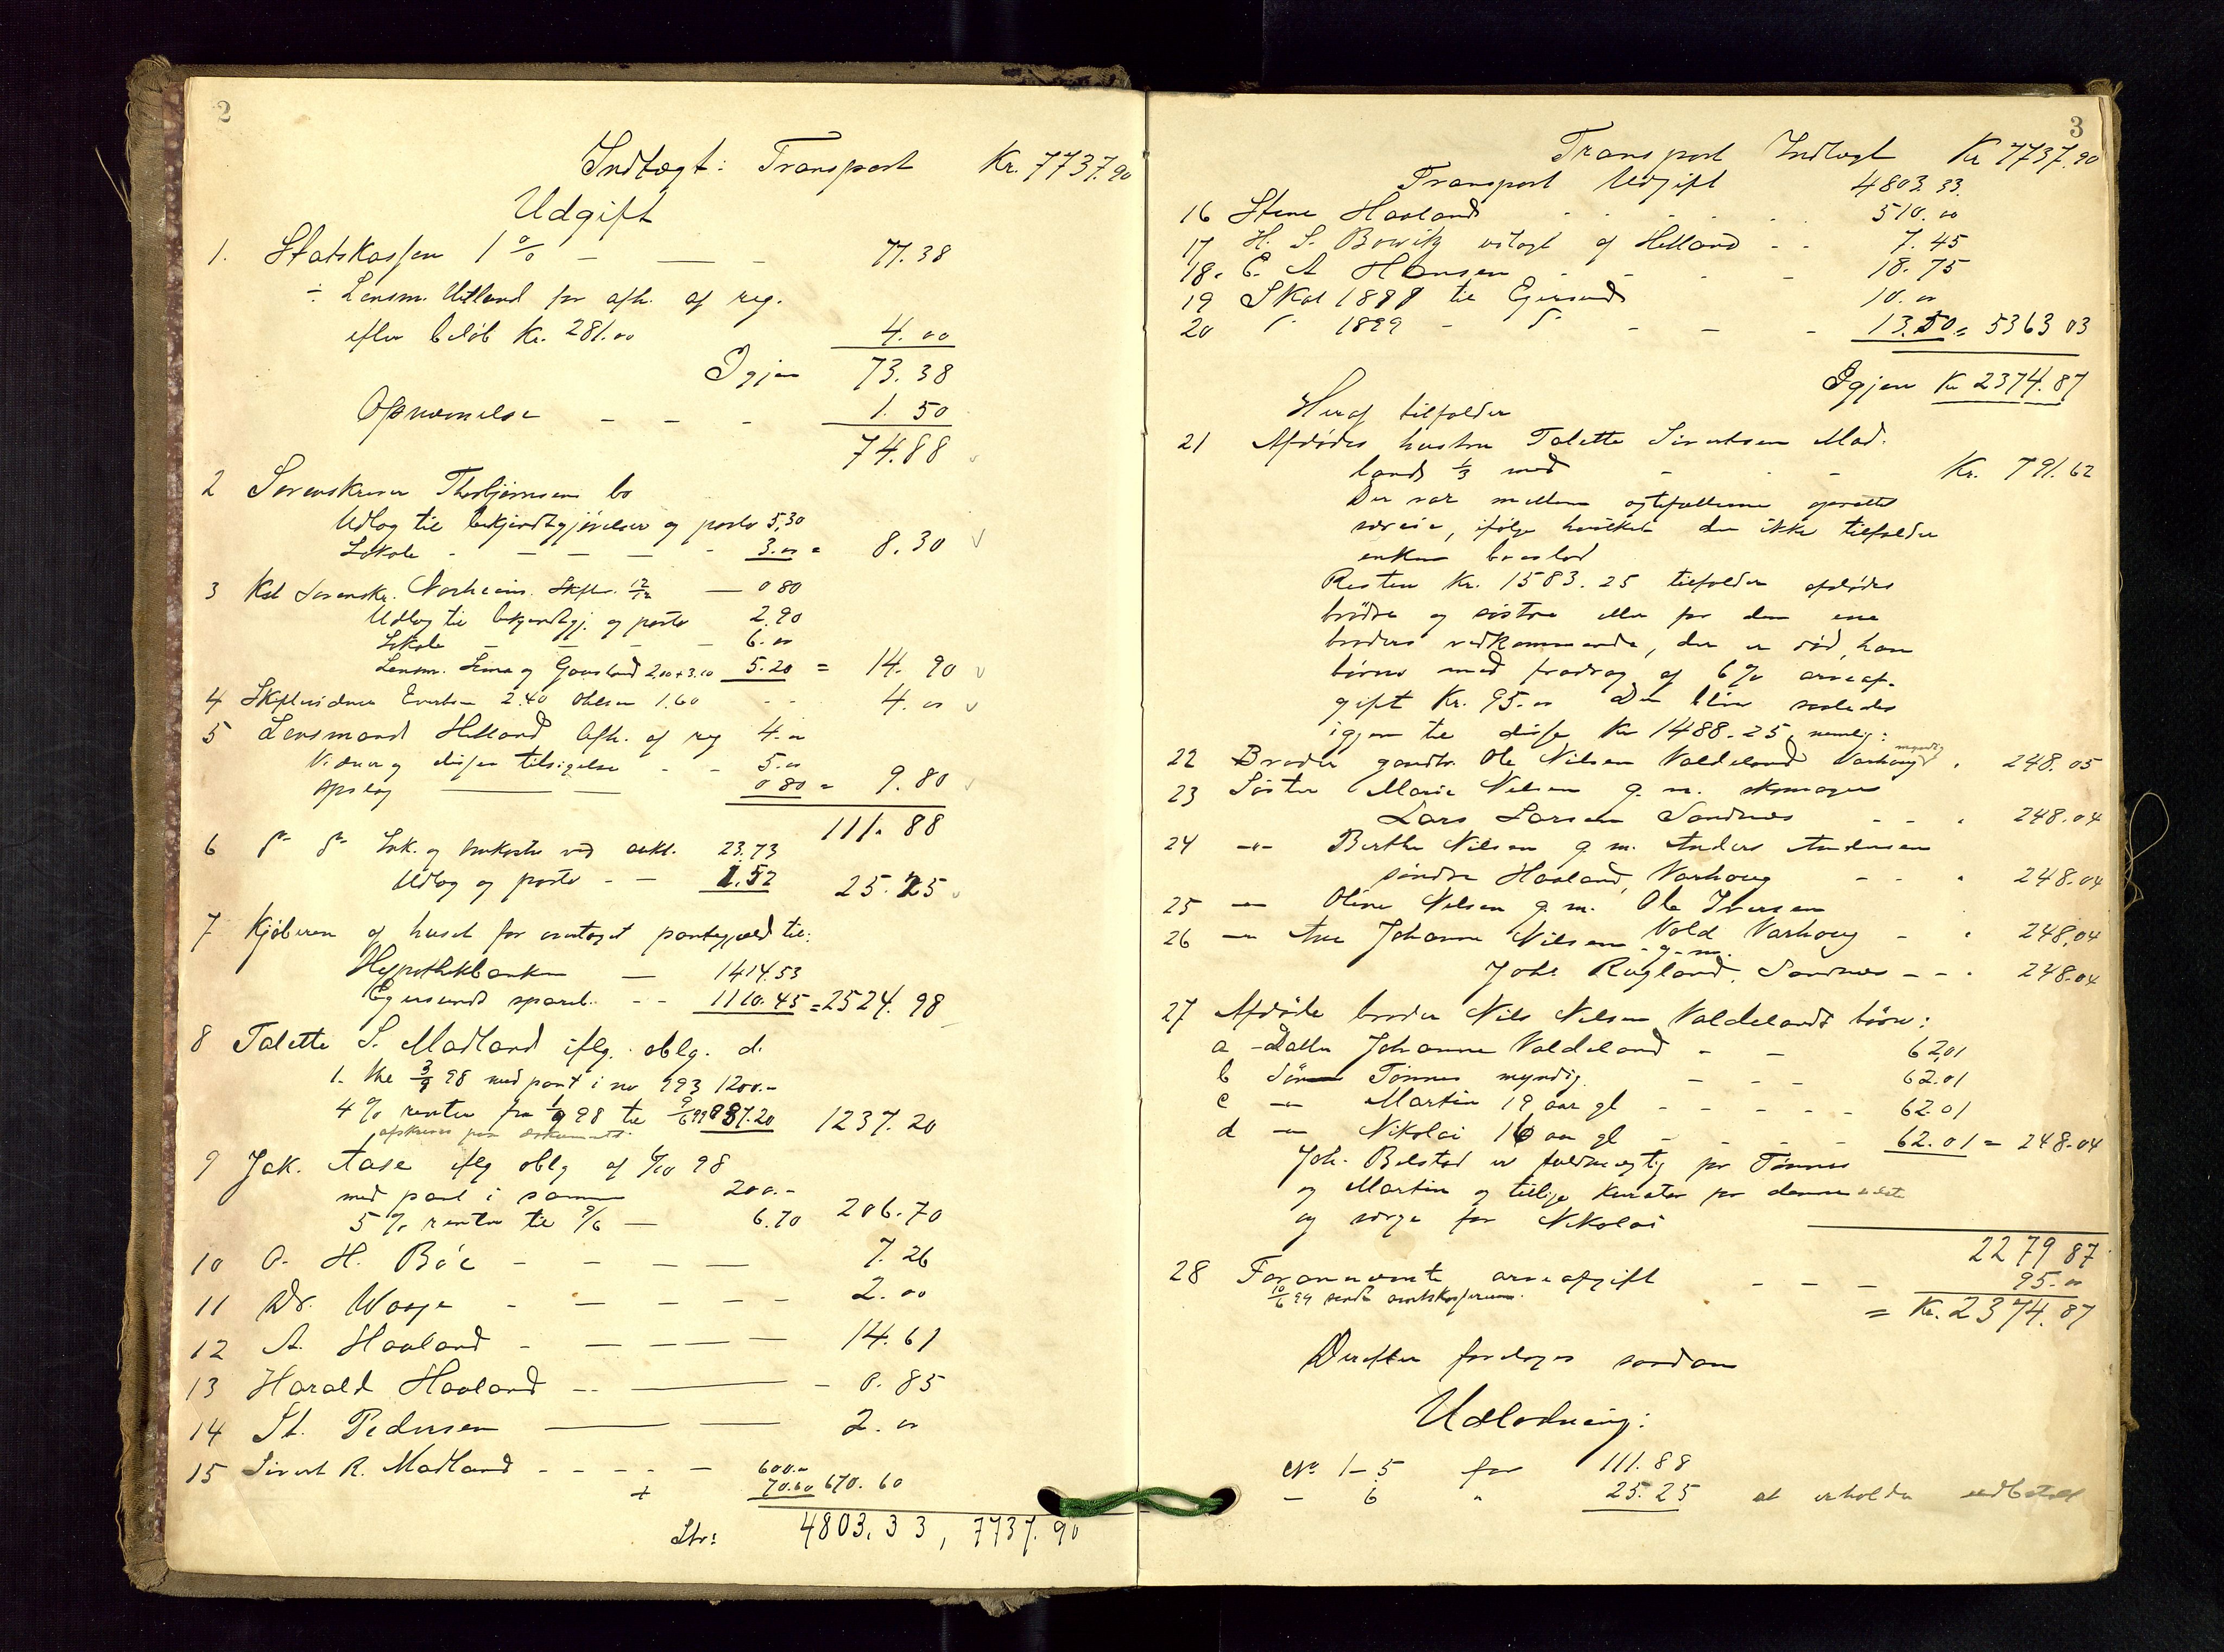 2
Indtægt: Transport Kr. 7737.90
Udgift
1. Statskassen 1 % - — - 77.38
÷ Lensm. Helland for afh. af reg.
efter beløb Kr. 281.00 4.00
Igjen 73.38
Opnævnelse - - - 1.50
74.88
2 Sorenskriver Thorbjørnsens bo
Udlæg til bekjendtgjørelser og porto 5.30
Lokale - — — — - 3.00 = 8.30
3 Kst Sorenskr. Norheim. Skftr. 12/12 — 0 80
Udlæg til bekjendtgj. og porto 2.90
Lokale - — — - 6.00
Lensm. Lima og Gausland 2.00+3.20 5.20 = 14.90
4 Skiftevidner Evertsen 2.40 Ohlsen 1.60 - - 4.00
5 Lensmand Helland Afh. af reg 4.00
Vidner og disses tilsigelse - - 5.00
Opslag — — 0 80 = 9.80
111.88
6 Lok. og omkostn ved aukt. 23.73
Udlæg og porto - — 1.52 25.25
7 Kjøberen af huset for overtaget pantegjæld til:
Hypothekbanken — 1414.53
Egersunds spareb. - - 1110.45 = 2524.98
8 Talette S. Madland iflg. oblg. d.
1. the 3/9 98 med pant i no 993 1200.-
4 % renter fra 1/9 98 til 9/6 99 37.20 1237.20
afskrives paa dokumentet.
9 Jak. Aase iflg oblg af 6/10 98
med pant i samme 200.-
5 % renter til 9/6 — 6.70 206.70
10 O. H. Bøe - - — — 7.26
11 Dr. Waage - — — — - 2.00
12 A. Haaland - — — — 14.61
13 Harald Haaland -- — - 0.85
14 St. Pedersen — — 2.00
15 Sivert R. Madland - - - - — 600.00
+ 70.60 670.60
Ltr: 4803.33, 7737.90
3
Transport Indtægt Kr 7737.90
Transport Udgift 4803.33.
16 Stene Haaland . . . . . 510.00
17 H. S. Bowitz udlagt af Helland - - 7.45
18. E. A. Hansen . - - - 18.75
19 Skat 1898 til Egersund 10.00
20 1899 - - — - 13.50 = 5363 03
Igjen Kr 2374.87
Heraf tilfalder
21 Afdødes hustru Talette Sivertsen Mad-
lands 1/3 med - . - Kr. 791.62
Der var mellem ægtefællerne oprettet
særeie, ifølge hvilket der ikke tilfalder
enken boeslod
Resten Kr. 1583.25 tilfalder afdødes
brødre og søstre eller for den ene
broders vedkommende, der er død, hans
børn med fradrag af 6 % arveaf-
gift Kr. 95.00 Der blir saaledes
igjen til disse Kr 1488.25, nemlig:
22 Broder gaardbr. Ole Nilsen Valdeland Varhoug myndig . 248.05
23 Søster Marie Nilsen g. m. skomager
Lars Larsen Sandnes - - . 248.04
24 -"- Berthe Nilsen g. m. Anders Andersen
søndre Haaland, Varhoug - - . 248.04
25 -"- Oline Nilsen g. m. Ole Iversen
Vold Varhoug - . 248.04
26 -"- Ane Johanne Nilsen g. m.
Johs Rugland, Sandnes - - . 248.04
27 Afdøde broder Nils Nilsen Valdelands børn:
a Datter Johanne Valdeland - - 62.01
b Søn Tønnes myndig. - - - 62.01
c -"- Martin 19 aar gl - - - - - 62.01
d -"- Nikolai 16 aar gl - - - - 62.01 = 248.04
Joh. Belstad er fuldmægtig for Tønnes
og Martin og tillige kurator for denne sidste
og værge for Nikolai
2279 87
28 Forannævnte arveafgift - - — 95.00
10/6 99 sendt amtskassereren.
= Kr. 2374.87
Derefter foretoges saadan
Udlodning:
No 1-5 for 111.88
— 6 " 25.25 at erholde udbetalt